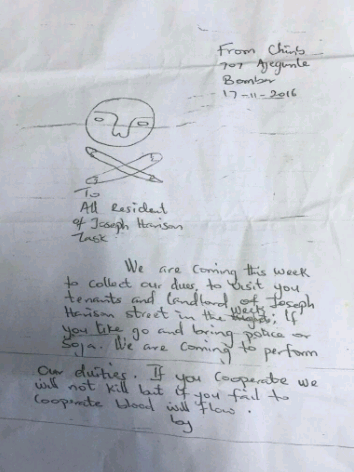 From Chinb
707 Ajegunle
Bomber
17-11-2016
To
All Resident
of Joseph Harison
Task
We are coming this week
to collect our dues, to visit you
tenants and landlord of Joseph
Harison street in the week; If
you like go and bring police or
Soja. We are coming to perform
our duities. If you cooperate we
will not kill but if you fail to
cooperate blood will flow.
by